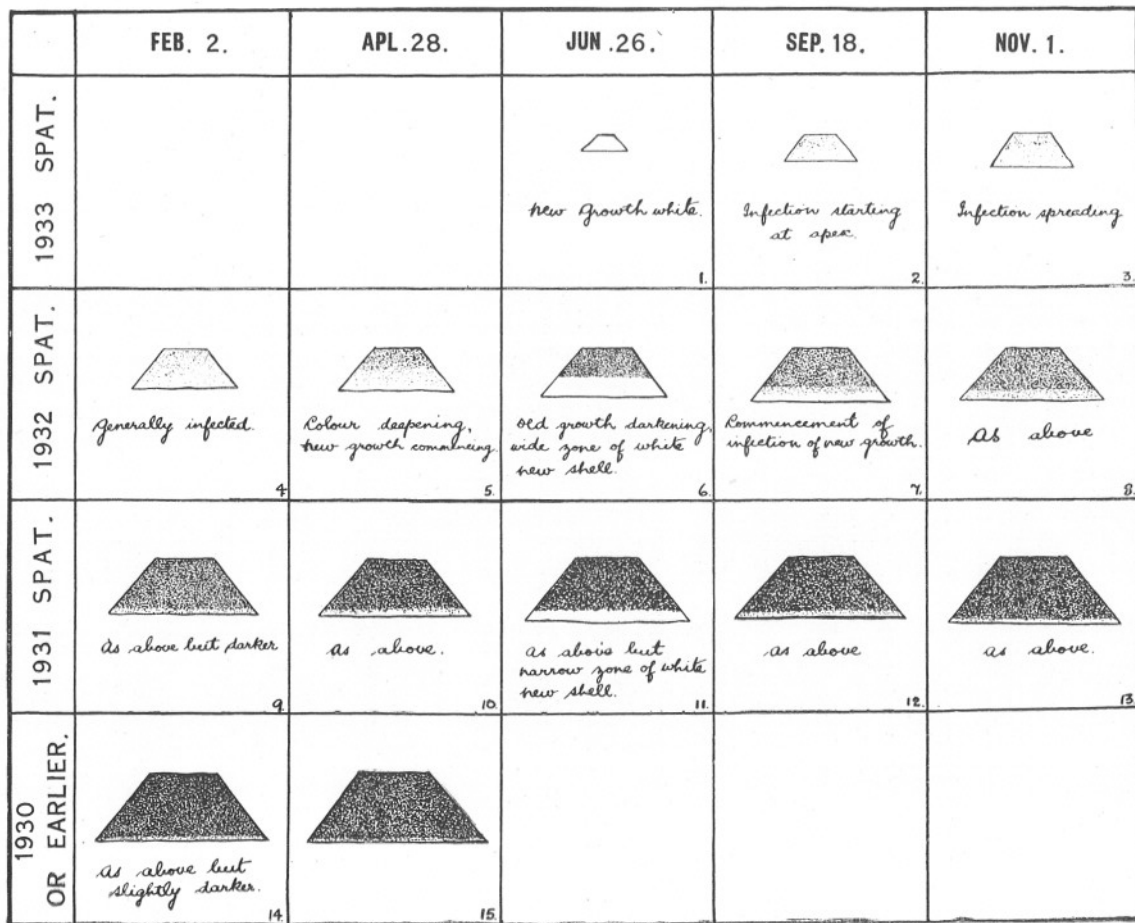 FEB. 2.
APL. 28.
JUN. 26.
SEP. 18.
NOV. 1.
1933 SPAT.
new growth white.
1.
Infection starting
at apex.
2.
Infection spreading
3.
1932 SPAT.
generally infected.
4.
Colour deepening,
new growth commencing.
5.
Old growth darkening,
wide zone of white
new shell.
6.
Commencement of
infection of new growth.
7.
As above
8.
1931 SPAT.
As above but darker
9.
As above.
10.
As above but
narrow zone of white
new shell.
11.
as above
12.
as above.
13.
1930
OR EARLIER.
As above but
slightly darker.
14.
15.